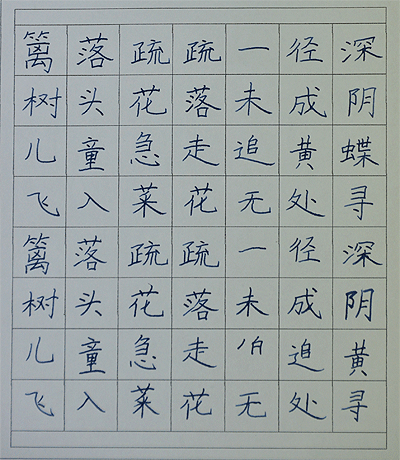 篱落疏疏一径深
树头花落未成阴
儿童急走追黄蝶
飞入菜花无处寻
篱落疏疏一径深
树头花落未成阴
儿童急走追黄
飞入菜花无处寻